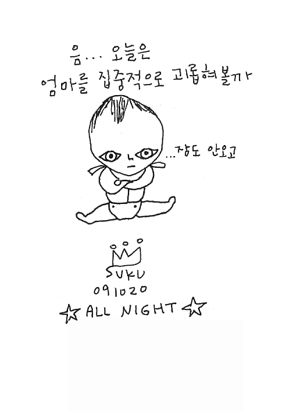 음... 오늘은
엄마를 집중적으로 괴롭혀볼까
...잠도 안오고
SUKU
091020
ALL NIGHT